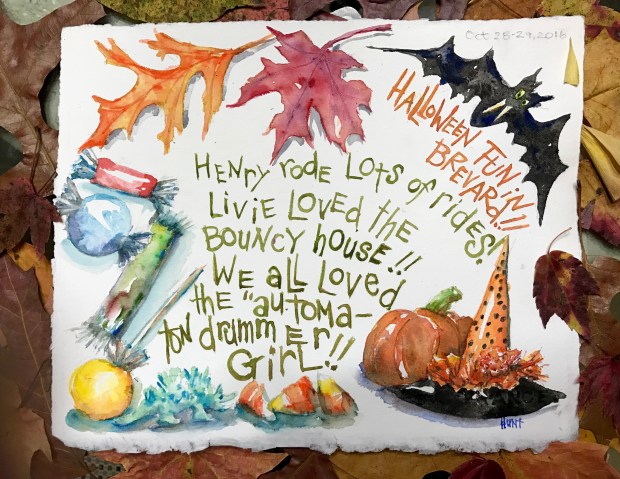 Oct 28-29, 2018
HALLOWEEN FUN IN
BREVARD!!
HENRY RODE LOTS OF RIDES!
LIVIE LOVED THE
BOUNCY HOUSE!!
WE ALL LOVED
THE "AUTOMA-
TON DRUMMER
GIRL!!
HUNT